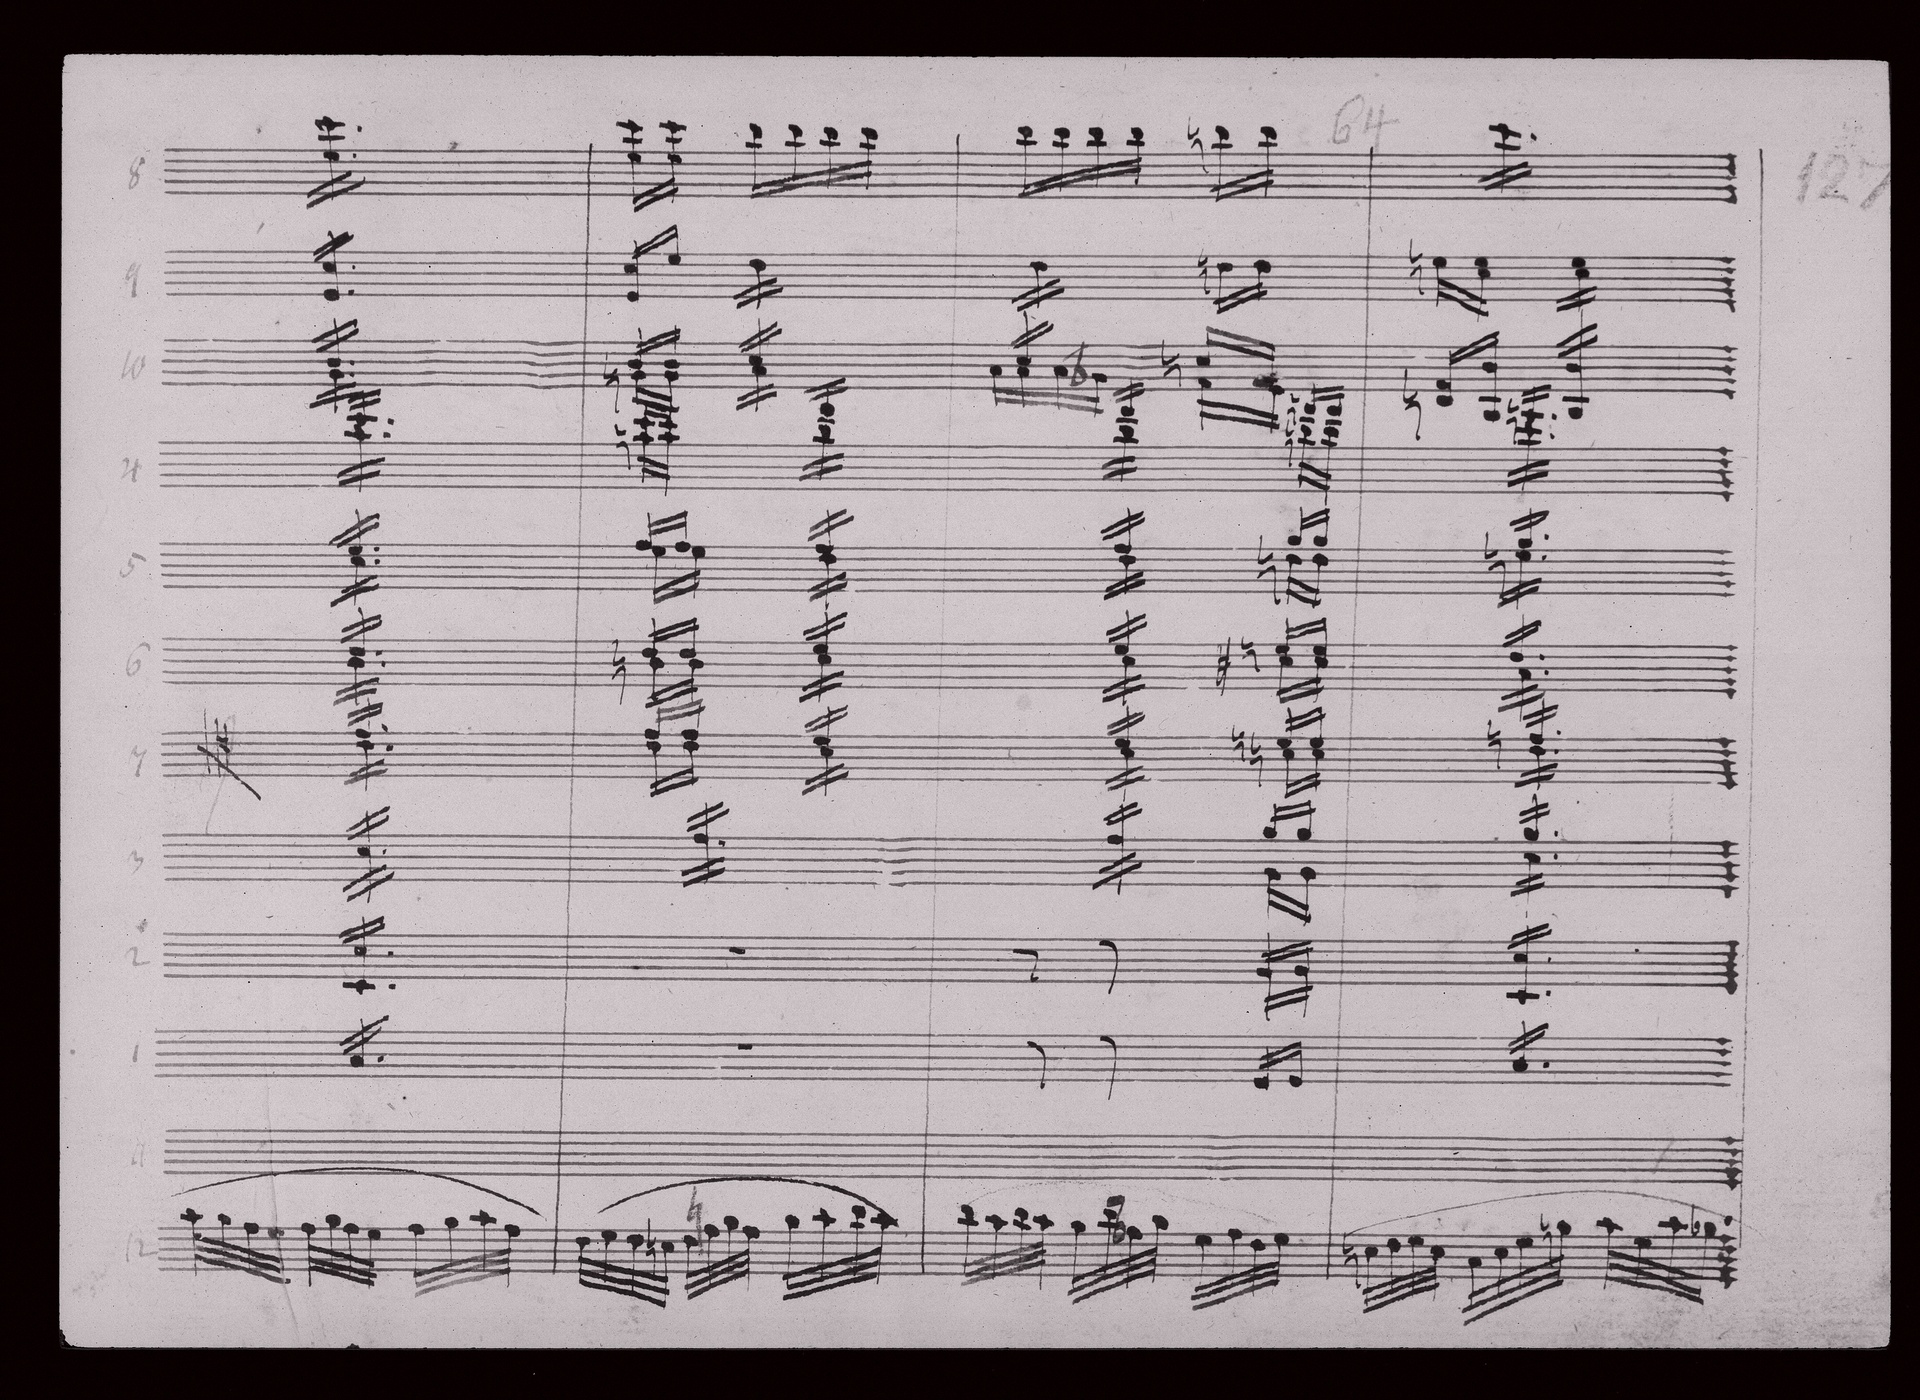 64
127
8
9
10
4
5
6
7
3
2
1
12